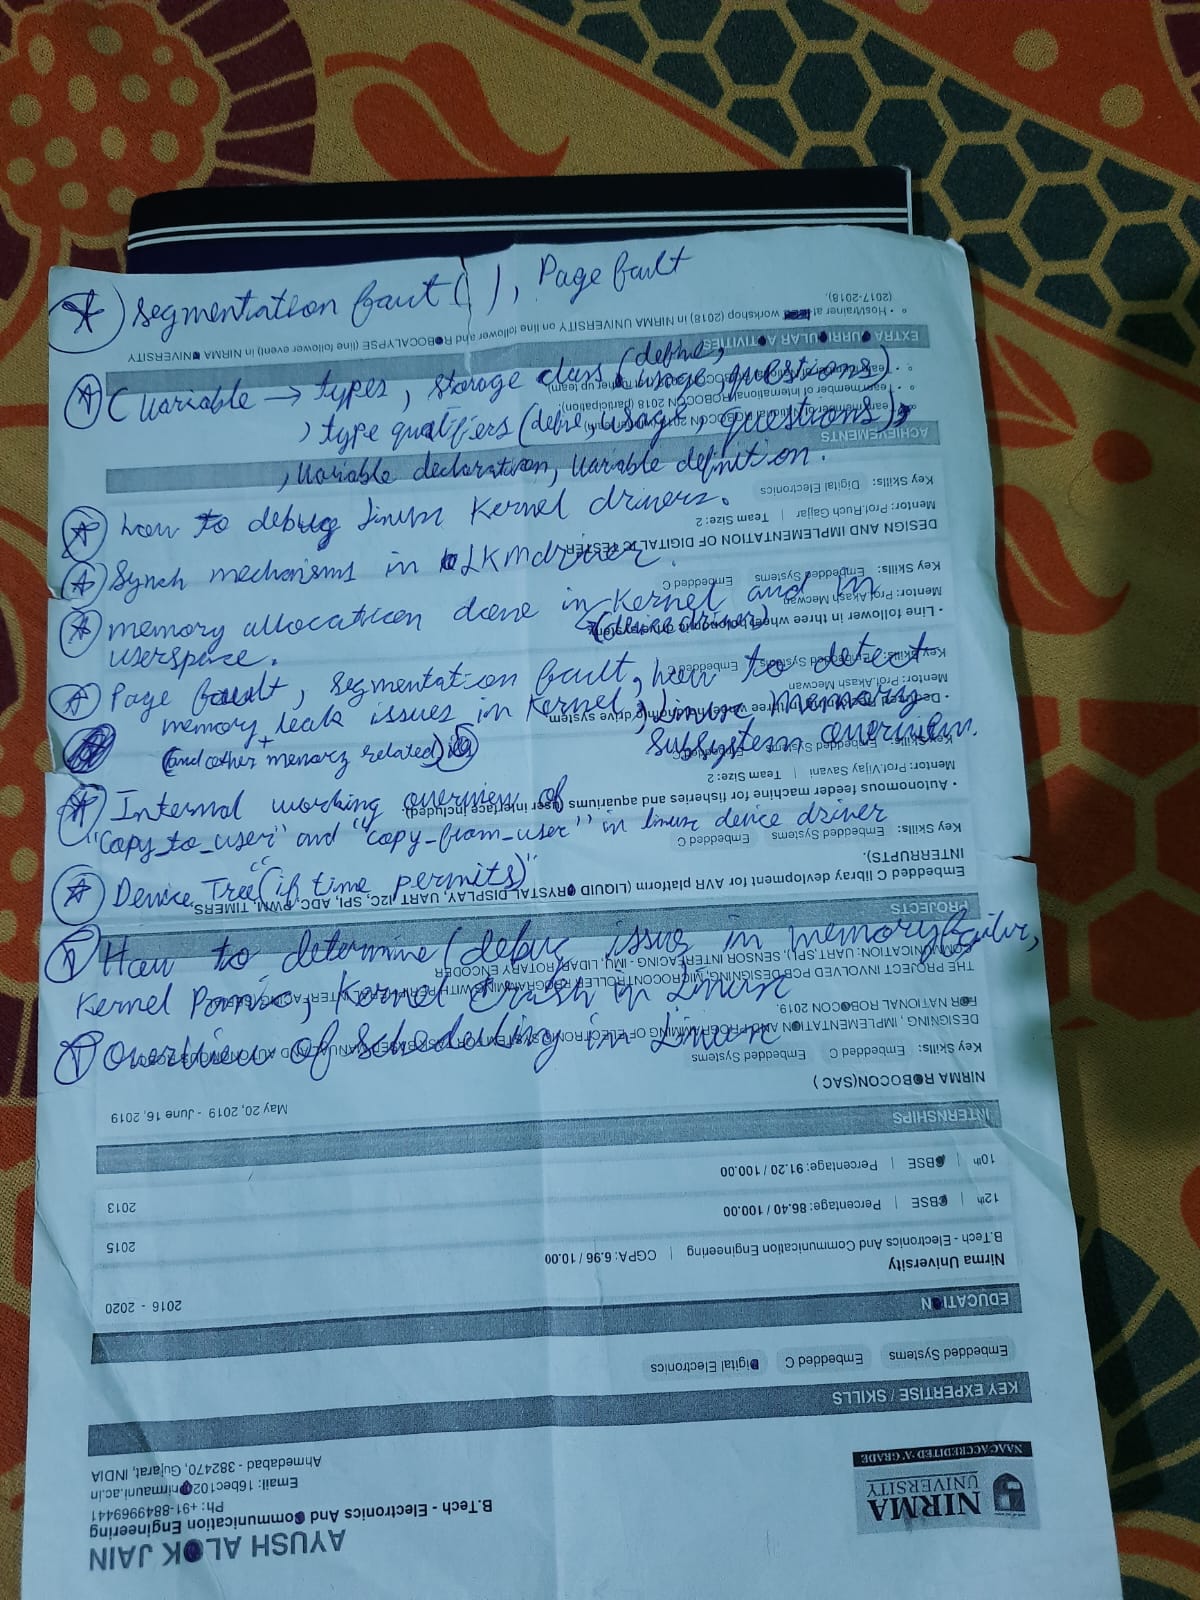 Segmentation fault ( ), Page fault
C variable → types, storage class (define, usage, questions)
, type qualifiers (define, usage, questions),
, variable declaration, variable definition.
How to debug Linux Kernel drivers.
Synch mechanisms in LKM driver.
memory allocation done in Kernel and in
(device driver)
userspace.
Page fault, segmentation fault, how to detect
memory leak issues in Kernel, Linux Memory
(and other memory related)
subsystem overview.
Internal working overview of
"Copy_to_user" and "copy_from_user" in linux device driver
Device Tree "(if time permits)"
How to determine/debug issue in memory failure,
Kernel Panic, Kernel Crash in Linux
Overview of Scheduling in Linux
AYUSH ALOK JAIN
B.Tech - Electronics And Communication Engineering
Ph: +91-8849969441
Email: 16bec102@nirmauni.ac.in
Ahmedabad - 382470, Gujarat, INDIA
NIRMA
UNIVERSITY
NAAC ACCREDITED 'A' GRADE
KEY EXPERTISE / SKILLS
Embedded Systems Embedded C Digital Electronics
EDUCATION
Nirma University
B.Tech - Electronics And Communication Engineering | CGPA: 6.96 / 10.00
2016 - 2020
12th | CBSE | Percentage: 86.40 / 100.00
2015
10th | CBSE | Percentage: 91.20 / 100.00
2013
INTERNSHIPS
NIRMA ROBOCON(SAC)
May 20, 2019 - June 16, 2019
Key Skills: Embedded C Embedded Systems
DESIGNING, IMPLEMENTATION AND PROGRAMMING OF ELECTRONIC SYSTEM FOR
FOR NATIONAL ROBOCON 2019.
THE PROJECT INVOLVED PCB DESIGNING, MICROCONTROLLER PROGRAMMING WITH
COMMUNICATION: UART, SPI, SENSOR INTERFACING - IMU, LIDAR, ROTARY ENCODER
PROJECTS
Embedded C library devlopment for AVR platform (LIQUID CRYSTAL DISPLAY, UART, I2C, SPI, ADC, PWM, TIMERS,
INTERRUPTS).
Key Skills: Embedded Systems Embedded C
• Autonomous feeder machine for fisheries and aquariums (user interface included).
Mentor: Prof.Vijay Savani | Team Size: 2
Key Skills: Embedded Systems Embedded C
Mentor: Prof.Akash Mecwan
Key Skills: Embedded Systems Embedded C
• Line follower in three wheel holonomic drive system
Mentor: Prof.Akash Mecwan
Key Skills: Embedded Systems Embedded C
DESIGN AND IMPLEMENTATION OF DIGITAL IC TESTER
Mentor: Prof.Ruchi Gajjar | Team Size: 2
Key Skills: Digital Electronics
ACHIEVEMENTS
EXTRA CURRICULAR ACTIVITIES
• Host/trainer at workshop (2018) in NIRMA UNIVERSITY on line follower and ROBOCALYPSE (line follower event) in NIRMA UNIVERSITY
(2017-2018).